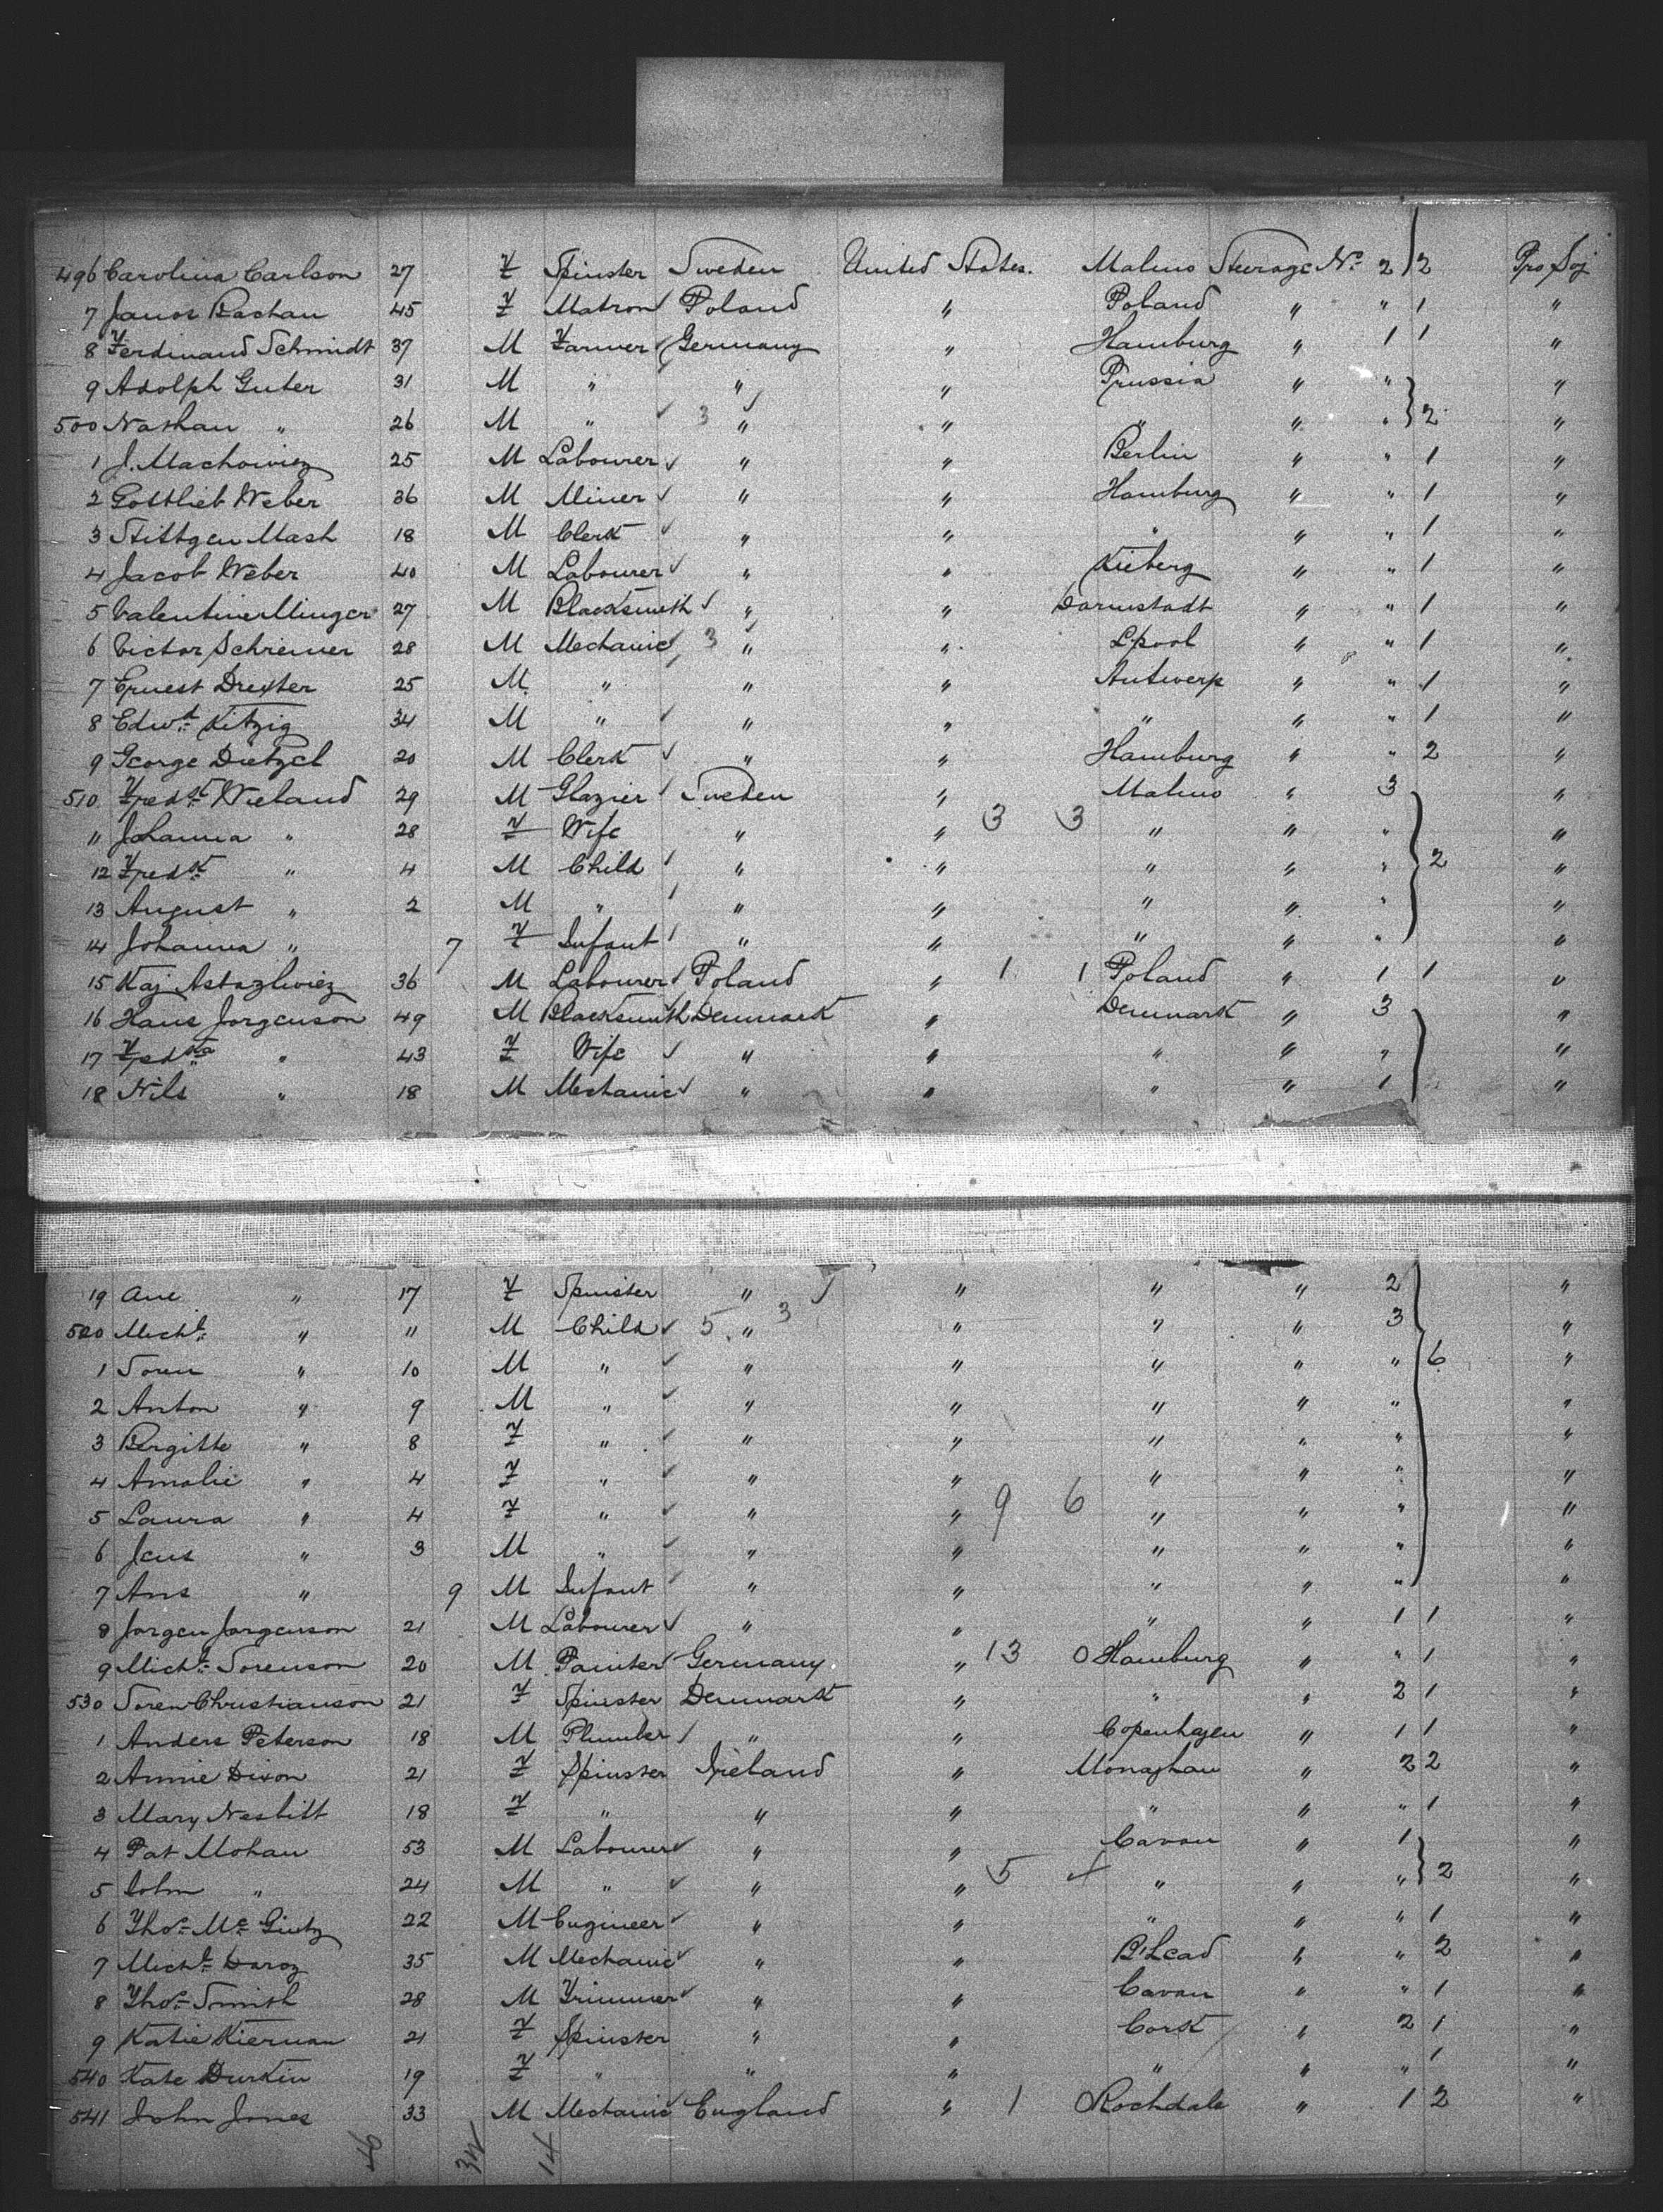 496 Carolina Carlson 27 F Spinster Sweden United States. Malmo Steerage No. 2 2 Pro Soj
7 Janos Rachau 45 F Matron Poland " Poland " " 1 "
8 Ferdinand Schmidt 37 M Farmer Germany " Hamburg " 1 1 "
9 Adolph Guter 31 M " " " Prussia " " "
500 Nathan " 26 M " 3 " " " " " 2 "
1 J. Machowiez 25 M Labourer " " Berlin " " 1 "
2 Gottlieb Weber 36 M Miner " " Hamburg " " 1 "
3 Stittgen Mash 18 M Clerk " " " " " 1 "
4 Jacob Weber 40 M Labourer " " Kieberg " " 1 "
5 Valentine Minger 27 M Blacksmith " " Darmstadt " " 1 "
6 Victor Schreiner 28 M Mechanic 3 " " L'pool " " 1 "
7 Ernest Drexter 25 M " " " Antwerp " " 1 "
8 Edwd. Kitzig 34 M " " " " " " 1 "
9 George Dietzel 20 M Clerk " " Hamburg " " 2 "
510 Fredk. Wieland 29 M Glazier Sweden " Malmo " 3 "
11 Johanna " 28 F Wife " " 3 3 " " " "
12 Fredk. " 4 M Child " " " " " 2 "
13 August " 2 M " " " " " " "
14 Johanna " 7 F Infant " " " " " "
15 Kaj Astazlwiez 36 M Labourer Poland " 1 1 Poland " 1 1 "
16 Hans Jorgenson 49 M Blacksmith Denmark " Denmark " 3 "
17 Fredka " 43 F Wife " " " " " "
18 Nils " 18 M Mechanic " " " " 1 "
19 Ane " 17 F Spinster " " " " 2 "
520 Michl. " 11 M Child 5 " 3 " " " 3 "
1 Soren " 10 M " " " " " " 6 "
2 Anton " 9 M " " " " " " "
3 Bergitte " 8 F " " " " " " "
4 Amalie " 4 F " " " " " " "
5 Laura " 4 F " " " 9 6 " " " "
6 Jens " 3 M " " " " " " "
7 Ans " 9 M Infant " " " " " "
8 Jorgen Jorgenson 21 M Labourer " " " " 1 1 "
9 Michl. Sorenson 20 M Painter Germany " 13 0 Hamburg " " 1 "
530 Soren Christianson 21 F Spinster Denmark " " " 2 1 "
1 Anders Peterson 18 M Plumber " " Copenhagen " 1 1 "
2 Annie Dixon 21 F Spinster Ireland " Monaghan " 2 2 "
3 Mary Nesbitt 18 F " " " " " " 1 "
4 Pat Mohan 53 M Labourer " " Cavan " 1 "
5 John " 24 M " " " 5 " " " 2 "
6 Thos. Mc Gintz 22 M Engineer " " " " " 1 "
7 Michl. Daroz 35 M Mechanic " " B'Lead " " 2 "
8 Thos. Smith 28 M Trimmer " " Cavan " " 1 "
9 Katie Kiernan 21 F Spinster " " Cork " 2 1 "
540 Kate Durkin 19 F " " " " " " 1 "
541 John Jones 33 M Mechanic England " 1 Rochdale " 1 2 "
46 14